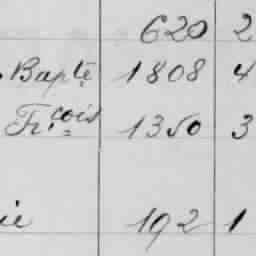 620 2
Bapte 1808 4
Frcois 1350 3
ie 192 1